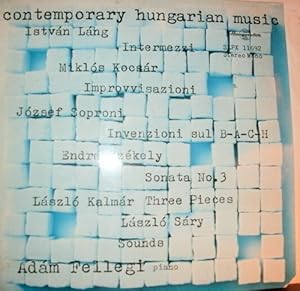 contemporary hungarian music
István Láng
Intermezzi
SLPX 11692
Stereo Mono
Miklós Kocsár
Improvvisazioni
József Soproni
Invenzioni sul B-A-C-H
Endre Székely
Sonata No.3
László Kalmár Three Pieces
László Sáry
Sounds
Adám Fellegi piano